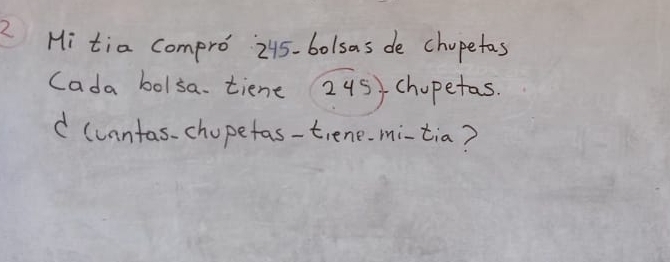 2
Mi tia compró 245-bolsas de chupetas
Cada bolsa-tiene 245-chupetas.
¿Cuantas-chupetas-tiene-mi-tia?